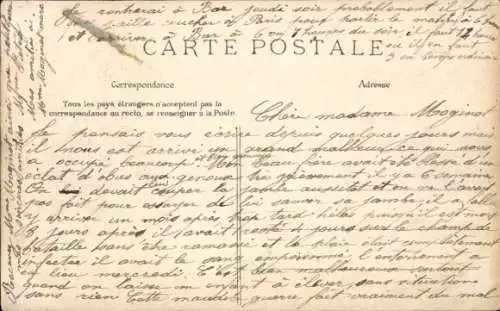 Je rentrerai à Bar jeudi soir probablement il faut
aille coucher à Paris pour partir le matin à 6 h
et arriver à Bar à 6 ou 7 heures du soir, il faut 12 heures
ou il en faut
3 en temps ordinaire
CARTE POSTALE
Correspondance
Adresse
Tous les pays étrangers n'acceptent pas la
correspondance au recto, se renseigner à la Poste.
Chère madame Maginot
Je pensais vous écrire depuis quelques jours mais
il nous est arrivé un grand malheur ce qui nous
a occupé beaucoup. Mon beau frère avait été blessé d'un
éclat d'obus au genou très grièvement il y a 6 semaines
On devait couper la jambe aussitôt et on ne l'avait
pas fait pour essayer de lui sauver sa jambe, il a fallu
y arriver un mois après trop tard hélas puisqu'il est mort
8 jours après il avait resté 4 jours sur le champ de
bataille sans être ramassé et la plaie était complètement
infectée il avait le sang empoisonné. L'enterrement a
eu lieu mercredi. C'est bien malheureux surtout
quand on laisse un enfant à élever sans situation
sans rien Cette maudite guerre fait vraiment du mal
Recevez Mme Maginot, ainsi que